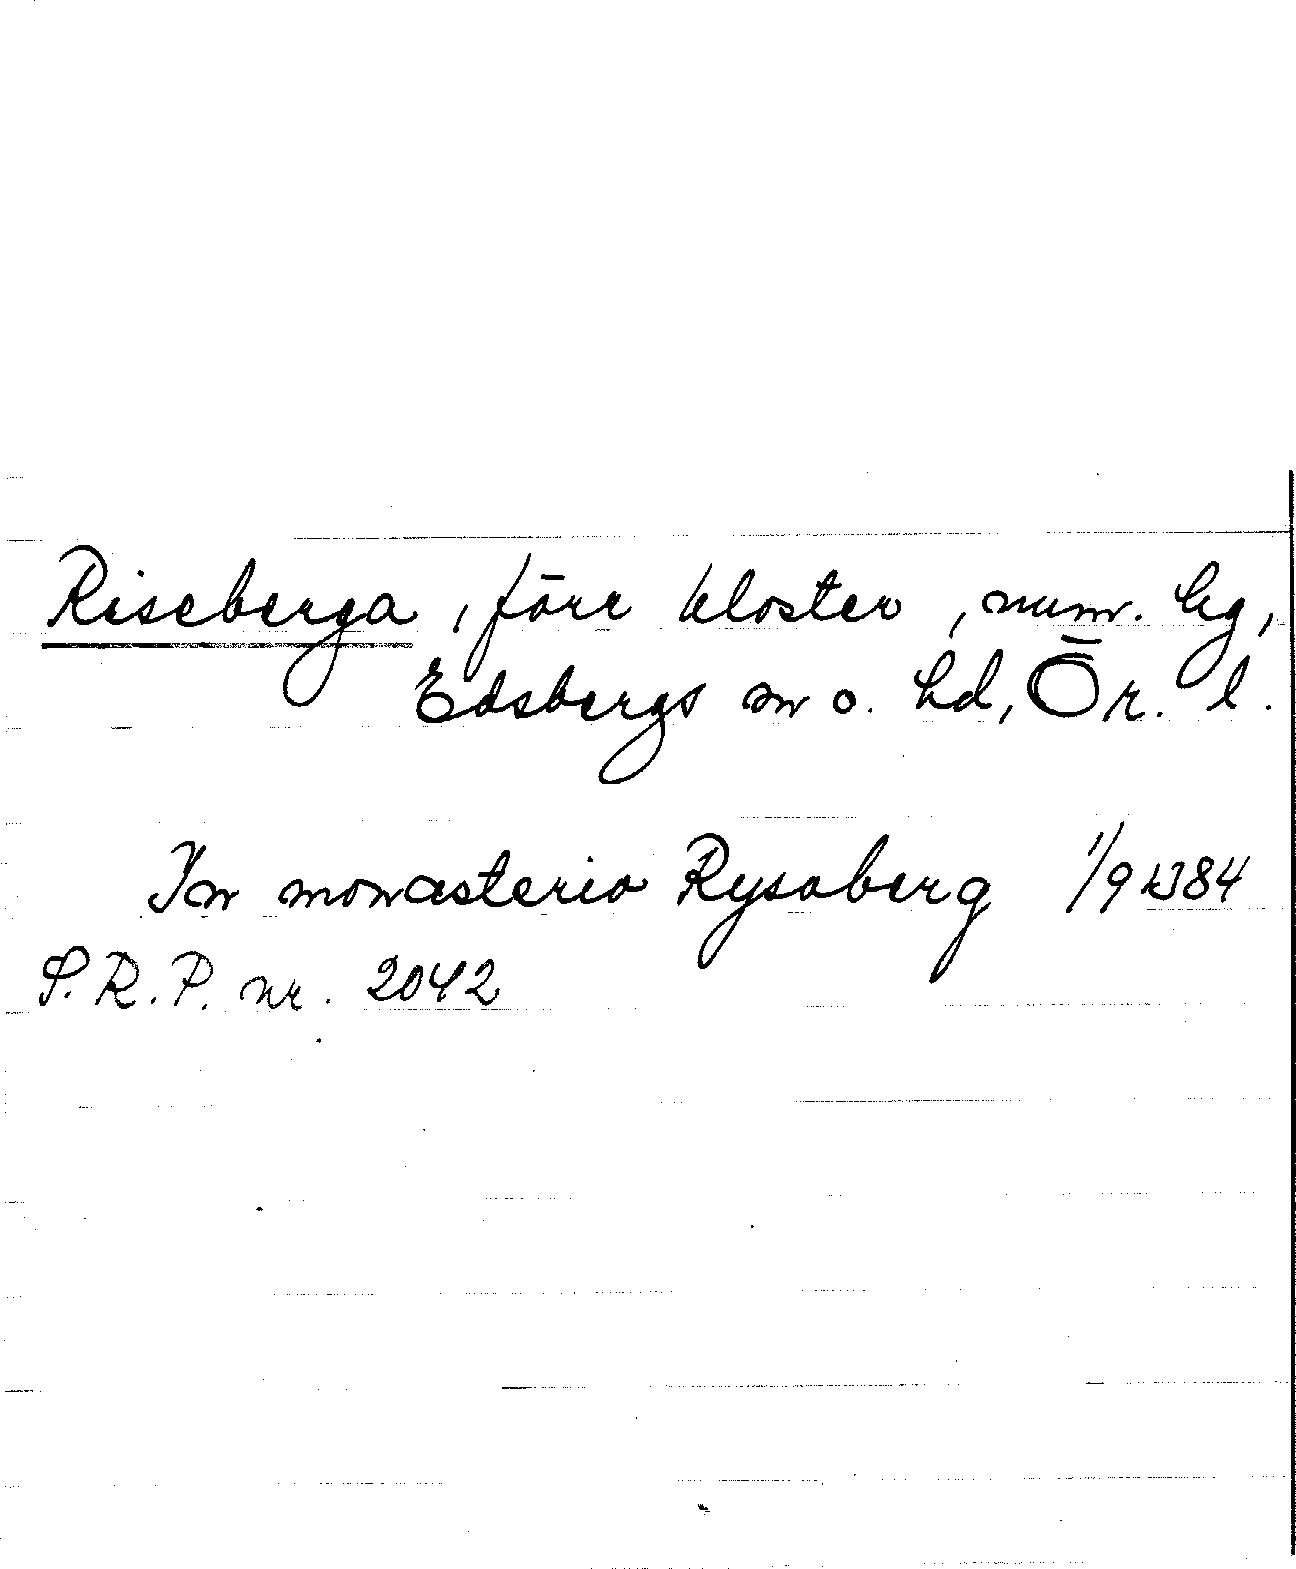 Riseberga, förr kloster, num. hg,
Edsbergs sn o. hd, Ör. l.
In monasterio Rysaberg 1/9 1384
S.R.P. nr. 2042